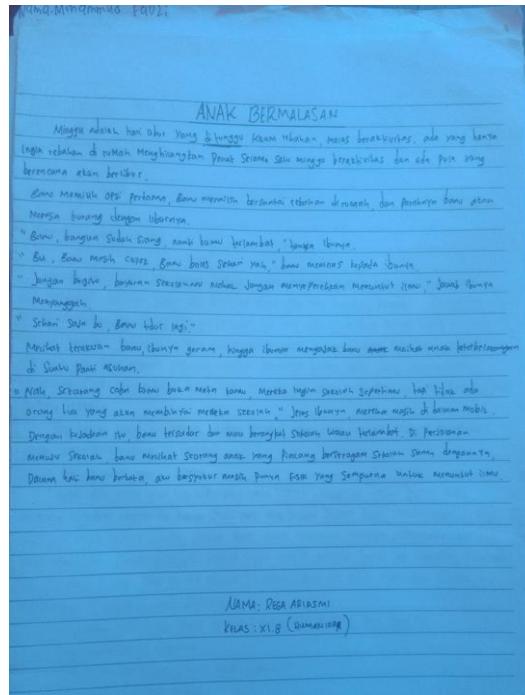 Nama: Muhammad Fauzi
ANAK BERMALASAN
Minggu adalah hari libur yang ditunggu kaum rebahan, malas beraktivitas, ada yang hanya
ingin rebahan di rumah Menghilangkan Penat Selama satu minggu beraktivitas dan ada pula yang
berencana akan berlibur.
Banu Memilih opsi pertama, Banu memilih bersantai rebahan dirumah, dan parahnya banu akan
Merasa kurang dengan liburnya.
"Banu, bangun sudah siang, nanti kamu terlambat," ibunya.
"Bu, Banu masih capek, Banu bolos sehari yah," banu kepada ibunya
"Jangan begitu, bayaran sekolahmu mahal jangan menuntut ilmu," Jawab ibunya
Menyanggah
"Sehari Saja bu, Banu tidur lagi"
Melihat kelakuan banu, ibunya geram, hingga ibunya mengajak banu melihat anak
di Suatu Panti Asuhan.
"Nah, Sekarang coba kamu buka mata kamu, Mereka ingin sekolah sepertimu, tapi tidak ada
orang tua yang akan membiayai mereka sekolah," Jelas ibunya, mereka masih di dalam mobil.
Dengan kejadian itu, banu tersadar dan mau berangkat sekolah walau terlambat. Di Perjalanan
Menuju Sekolah, banu melihat seorang anak yang Pincang berseragam sekolah sama dengannya,
Dalam hati banu berkata, aku bersyukur masih punya fisik yang sempurna untuk menuntut ilmu
NAMA: REGA
KELAS: XI.8